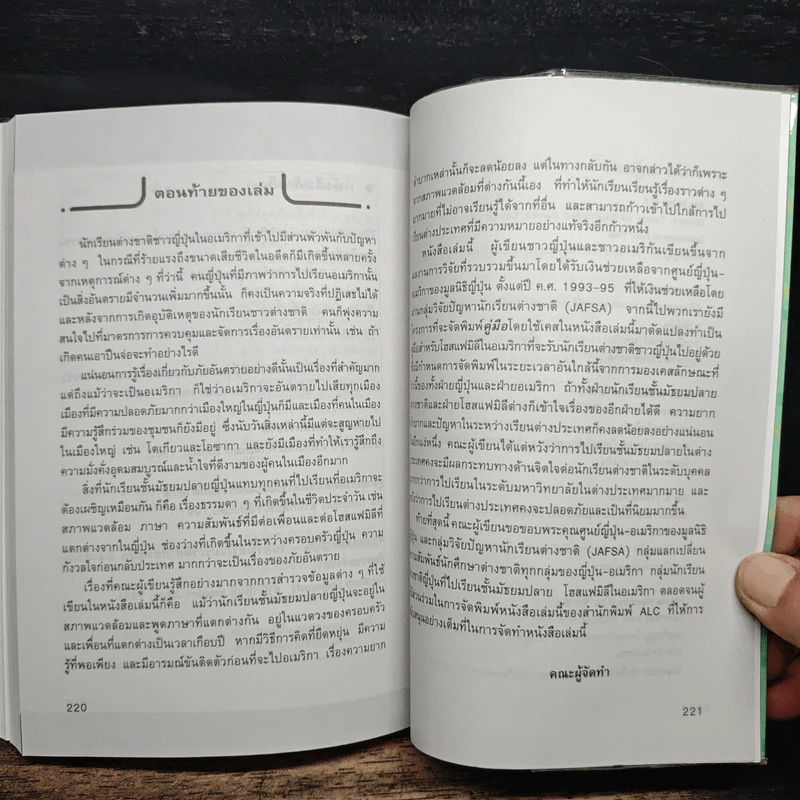 ตอนท้ายของเล่ม
นักเรียนต่างชาติชาวญี่ปุ่นในอเมริกาที่เข้าไปมีส่วนพัวพันกับปัญหา
ต่าง ๆ ในกรณีที่ร้ายแรงถึงขนาดเสียชีวิตในอดีตก็มีเกิดขึ้นหลายครั้ง
จากเหตุการณ์ต่าง ๆ ที่ว่านี้ คนญี่ปุ่นที่มีภาพว่าการไปเรียนอเมริกานั้น
เป็นสิ่งอันตรายมีจำนวนเพิ่มมากขึ้นนั้น ก็คงเป็นความจริงที่ปฏิเสธไม่ได้
และหลังจากการเกิดอุบัติเหตุของนักเรียนชาวต่างชาติ คนก็พุ่งความ
สนใจไปที่มาตรการการควบคุมและจัดการเรื่องอันตรายเท่านั้น เช่น ถ้า
เกิดคนเอาปืนจ่อจะทำอย่างไรดี
แน่นอนการรู้เรื่องเกี่ยวกับภัยอันตรายอย่างดีนั้นเป็นเรื่องที่สำคัญมาก
แต่ถึงแม้ว่าจะเป็นอเมริกา ก็ใช่ว่าอเมริกาจะอันตรายไปเสียทุกเมือง
เมืองที่มีความปลอดภัยมากกว่าเมืองใหญ่ในญี่ปุ่นก็มีและเมืองที่คนในเมือง
มีความรู้สึกร่วมของชุมชนก็ยังมีอยู่ ซึ่งนับวันสิ่งเหล่านี้มีแต่จะสูญหายไป
ในเมืองใหญ่ เช่น โตเกียวและโอซากา และยังมีเมืองที่ทำให้เรารู้สึกถึง
ความมั่งคั่งอุดมสมบูรณ์และน้ำใจที่ดีงามของผู้คนในเมืองอีกมาก
สิ่งที่นักเรียนชั้นมัธยมปลายญี่ปุ่นแทบทุกคนที่ไปเรียนที่อเมริกาจะ
ต้องเผชิญเหมือนกัน ก็คือ เรื่องธรรมดา ๆ ที่เกิดขึ้นในชีวิตประจำวัน เช่น
สภาพแวดล้อม ภาษา ความสัมพันธ์ที่มีต่อเพื่อนและต่อโฮสแฟมิลีที่
แตกต่างจากในญี่ปุ่น ช่องว่างที่เกิดขึ้นในระหว่างครอบครัวญี่ปุ่น ความ
กังวลใจก่อนกลับประเทศ มากกว่าจะเป็นเรื่องของภัยอันตราย
เรื่องที่คณะผู้เขียนรู้สึกอย่างมากจากการสำรวจข้อมูลต่าง ๆ ที่ใช้
เขียนในหนังสือเล่มนี้ก็คือ แม้ว่านักเรียนชั้นมัธยมปลายญี่ปุ่นจะอยู่ใน
สภาพแวดล้อมและพูดภาษาที่แตกต่างกัน อยู่ในแวดวงของครอบครัว
และเพื่อนที่แตกต่างเป็นเวลาเกือบปี หากมีวิธีการคิดที่ยืดหยุ่น มีความ
รู้ที่พอเพียง และมีอารมณ์ขันติดตัวก่อนที่จะไปอเมริกา เรื่องความยาก
220
ลำบากเหล่านั้นก็จะลดน้อยลง แต่ในทางกลับกัน อาจกล่าวได้ว่าก็เพราะ
จากสภาพแวดล้อมที่ต่างกันนี้เอง ที่ทำให้นักเรียนเรียนรู้เรื่องราวต่าง ๆ
มากมายที่ไม่อาจเรียนรู้ได้จากที่อื่น และสามารถก้าวเข้าไปใกล้การไป
เรียนต่างประเทศที่มีความหมายอย่างแท้จริงอีกก้าวหนึ่ง
หนังสือเล่มนี้ ผู้เขียนชาวญี่ปุ่นและชาวอเมริกันเขียนขึ้นจาก
ผลงานการวิจัยที่รวบรวมขึ้นมาโดยได้รับเงินช่วยเหลือจากศูนย์ญี่ปุ่น-
อเมริกาของมูลนิธิญี่ปุ่น ตั้งแต่ปี ค.ศ. 1993-95 ที่ให้เงินช่วยเหลือโดย
ผ่านกลุ่มวิจัยปัญหานักเรียนต่างชาติ (JAFSA) จากนี้ไปพวกเรายังมี
โครงการที่จะจัดพิมพ์คู่มือโดยใช้เคสในหนังสือเล่มนี้มาดัดแปลงทำเป็น
สำหรับโฮสแฟมิลีในอเมริกาที่จะรับนักเรียนต่างชาติชาวญี่ปุ่นไปอยู่ด้วย
มีกำหนดการจัดพิมพ์ในระยะเวลาอันใกล้นี้จากการมองเคสลักษณะที่
เรื่องทั้งฝ่ายญี่ปุ่นและฝ่ายอเมริกา ถ้าทั้งฝ่ายนักเรียนชั้นมัธยมปลาย
ต่างชาติและฝ่ายโฮสแฟมิลีต่างก็เข้าใจเรื่องของอีกฝ่ายได้ดี ความยาก
ลำบากและปัญหาในระหว่างเรียนต่างประเทศก็คงลดน้อยลงอย่างแน่นอน
แห่งหนึ่ง คณะผู้เขียนได้แต่หวังว่าการไปเรียนชั้นมัธยมปลายในต่าง
ประเทศคงจะมีผลกระทบทางด้านจิตใจต่อนักเรียนต่างชาติในระดับบุคคล
มากกว่าการไปเรียนในระดับมหาวิทยาลัยในต่างประเทศมากมาย และ
หวังว่าการไปเรียนต่างประเทศคงจะปลอดภัยและเป็นที่นิยมมากขึ้น
ท้ายที่สุดนี้ คณะผู้เขียนขอขอบพระคุณศูนย์ญี่ปุ่น-อเมริกาของมูลนิธิ
ญี่ปุ่น และกลุ่มวิจัยปัญหานักเรียนต่างชาติ (JAFSA) กลุ่มแลกเปลี่ยน
ความสัมพันธ์นักศึกษาต่างชาติทุกกลุ่มของญี่ปุ่น-อเมริกา กลุ่มนักเรียน
ต่างชาติญี่ปุ่นที่ไปเรียนชั้นมัธยมปลาย โฮสแฟมิลีในอเมริกา ตลอดจนผู้
มีส่วนร่วมในการจัดพิมพ์หนังสือเล่มนี้ของสำนักพิมพ์ ALC ที่ให้การ
สนับสนุนอย่างเต็มที่ในการจัดทำหนังสือเล่มนี้
คณะผู้จัดทำ
221